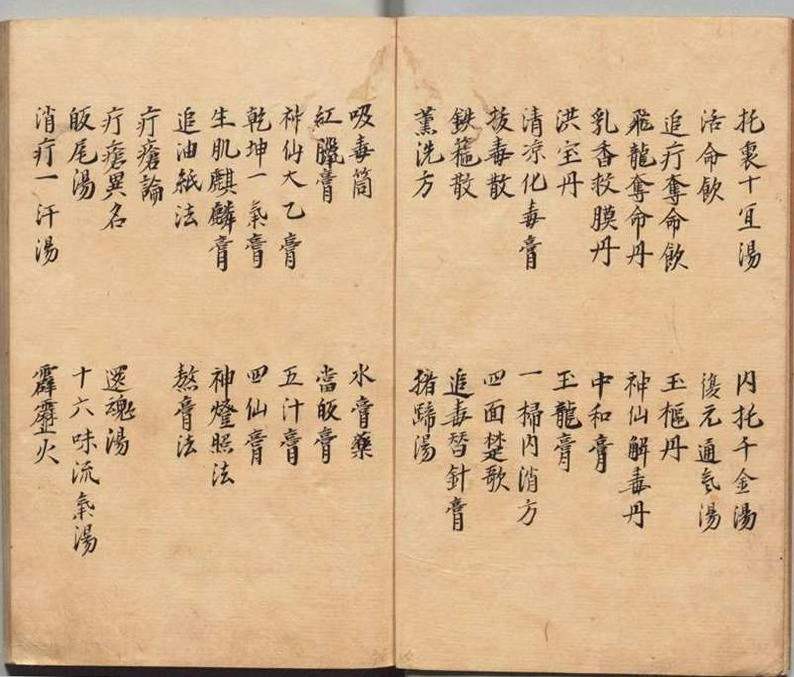 托裏十宜湯
內托千金湯
活命飲
復元通氣湯
追疔奪命飲
玉樞丹
飛龍奪命丹
神仙解毒丹
乳香救膜丹
中和膏
洪宝丹
玉龍膏
清凉化毒膏
一掃內消方
拔毒散
四面楚歌
鉄箍散
追毒替針膏
薰洗方
猪蹄湯
吸毒筒
水膏藥
紅臘膏
當皈膏
神仙太乙膏
五汁膏
乾坤一氣膏
四仙膏
生肌麒麟膏
神燈照法
追油紙法
熬膏法
疔瘡論
疔瘡異名
還魂湯
皈尾湯
十六味流氣湯
消疔一汗湯
霹靂火